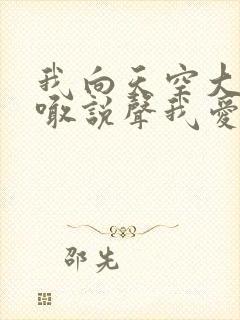 我向天空大
噉説聲我愛
邵先